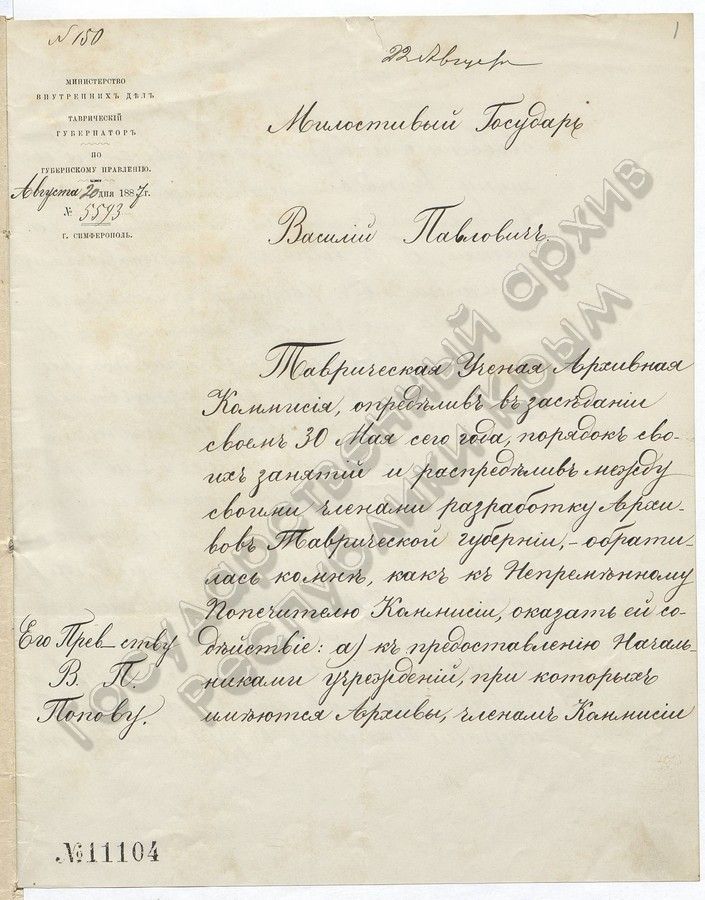 N 150
22 Августа
1
МИНИСТЕРСТВО
ВНУТРЕННИХЪ ДѢЛЪ
ТАВРИЧЕСКІЙ
ГУБЕРНАТОРЪ
ПО
ГУБЕРНСКОМУ ПРАВЛЕНІЮ.
Августа 20 дня 1887 г.
№ 5593
Г. СИМФЕРОПОЛЬ.
Милостивый Государь
Василій Павловичъ.
Таврическая Ученая Архивная
Коммисія, опредѣливъ въ засѣданіи
своемъ 30 Мая сего года, порядокъ сво-
ихъ занятій и распредѣливъ между
своими членами разработку Архи-
вовъ Таврической губерніи, - обрати-
лась ко мнѣ, какъ къ Непремѣнному
Попечителю Коммисіи, оказать ей со-
дѣйствіе: а) къ предоставленію Началь-
никами учрежденій, при которыхъ
имѣются Архивы, членамъ Коммисіи
Его Прев-ству
В. П.
Попову.
№11104
Государственный архив
Республики Крым